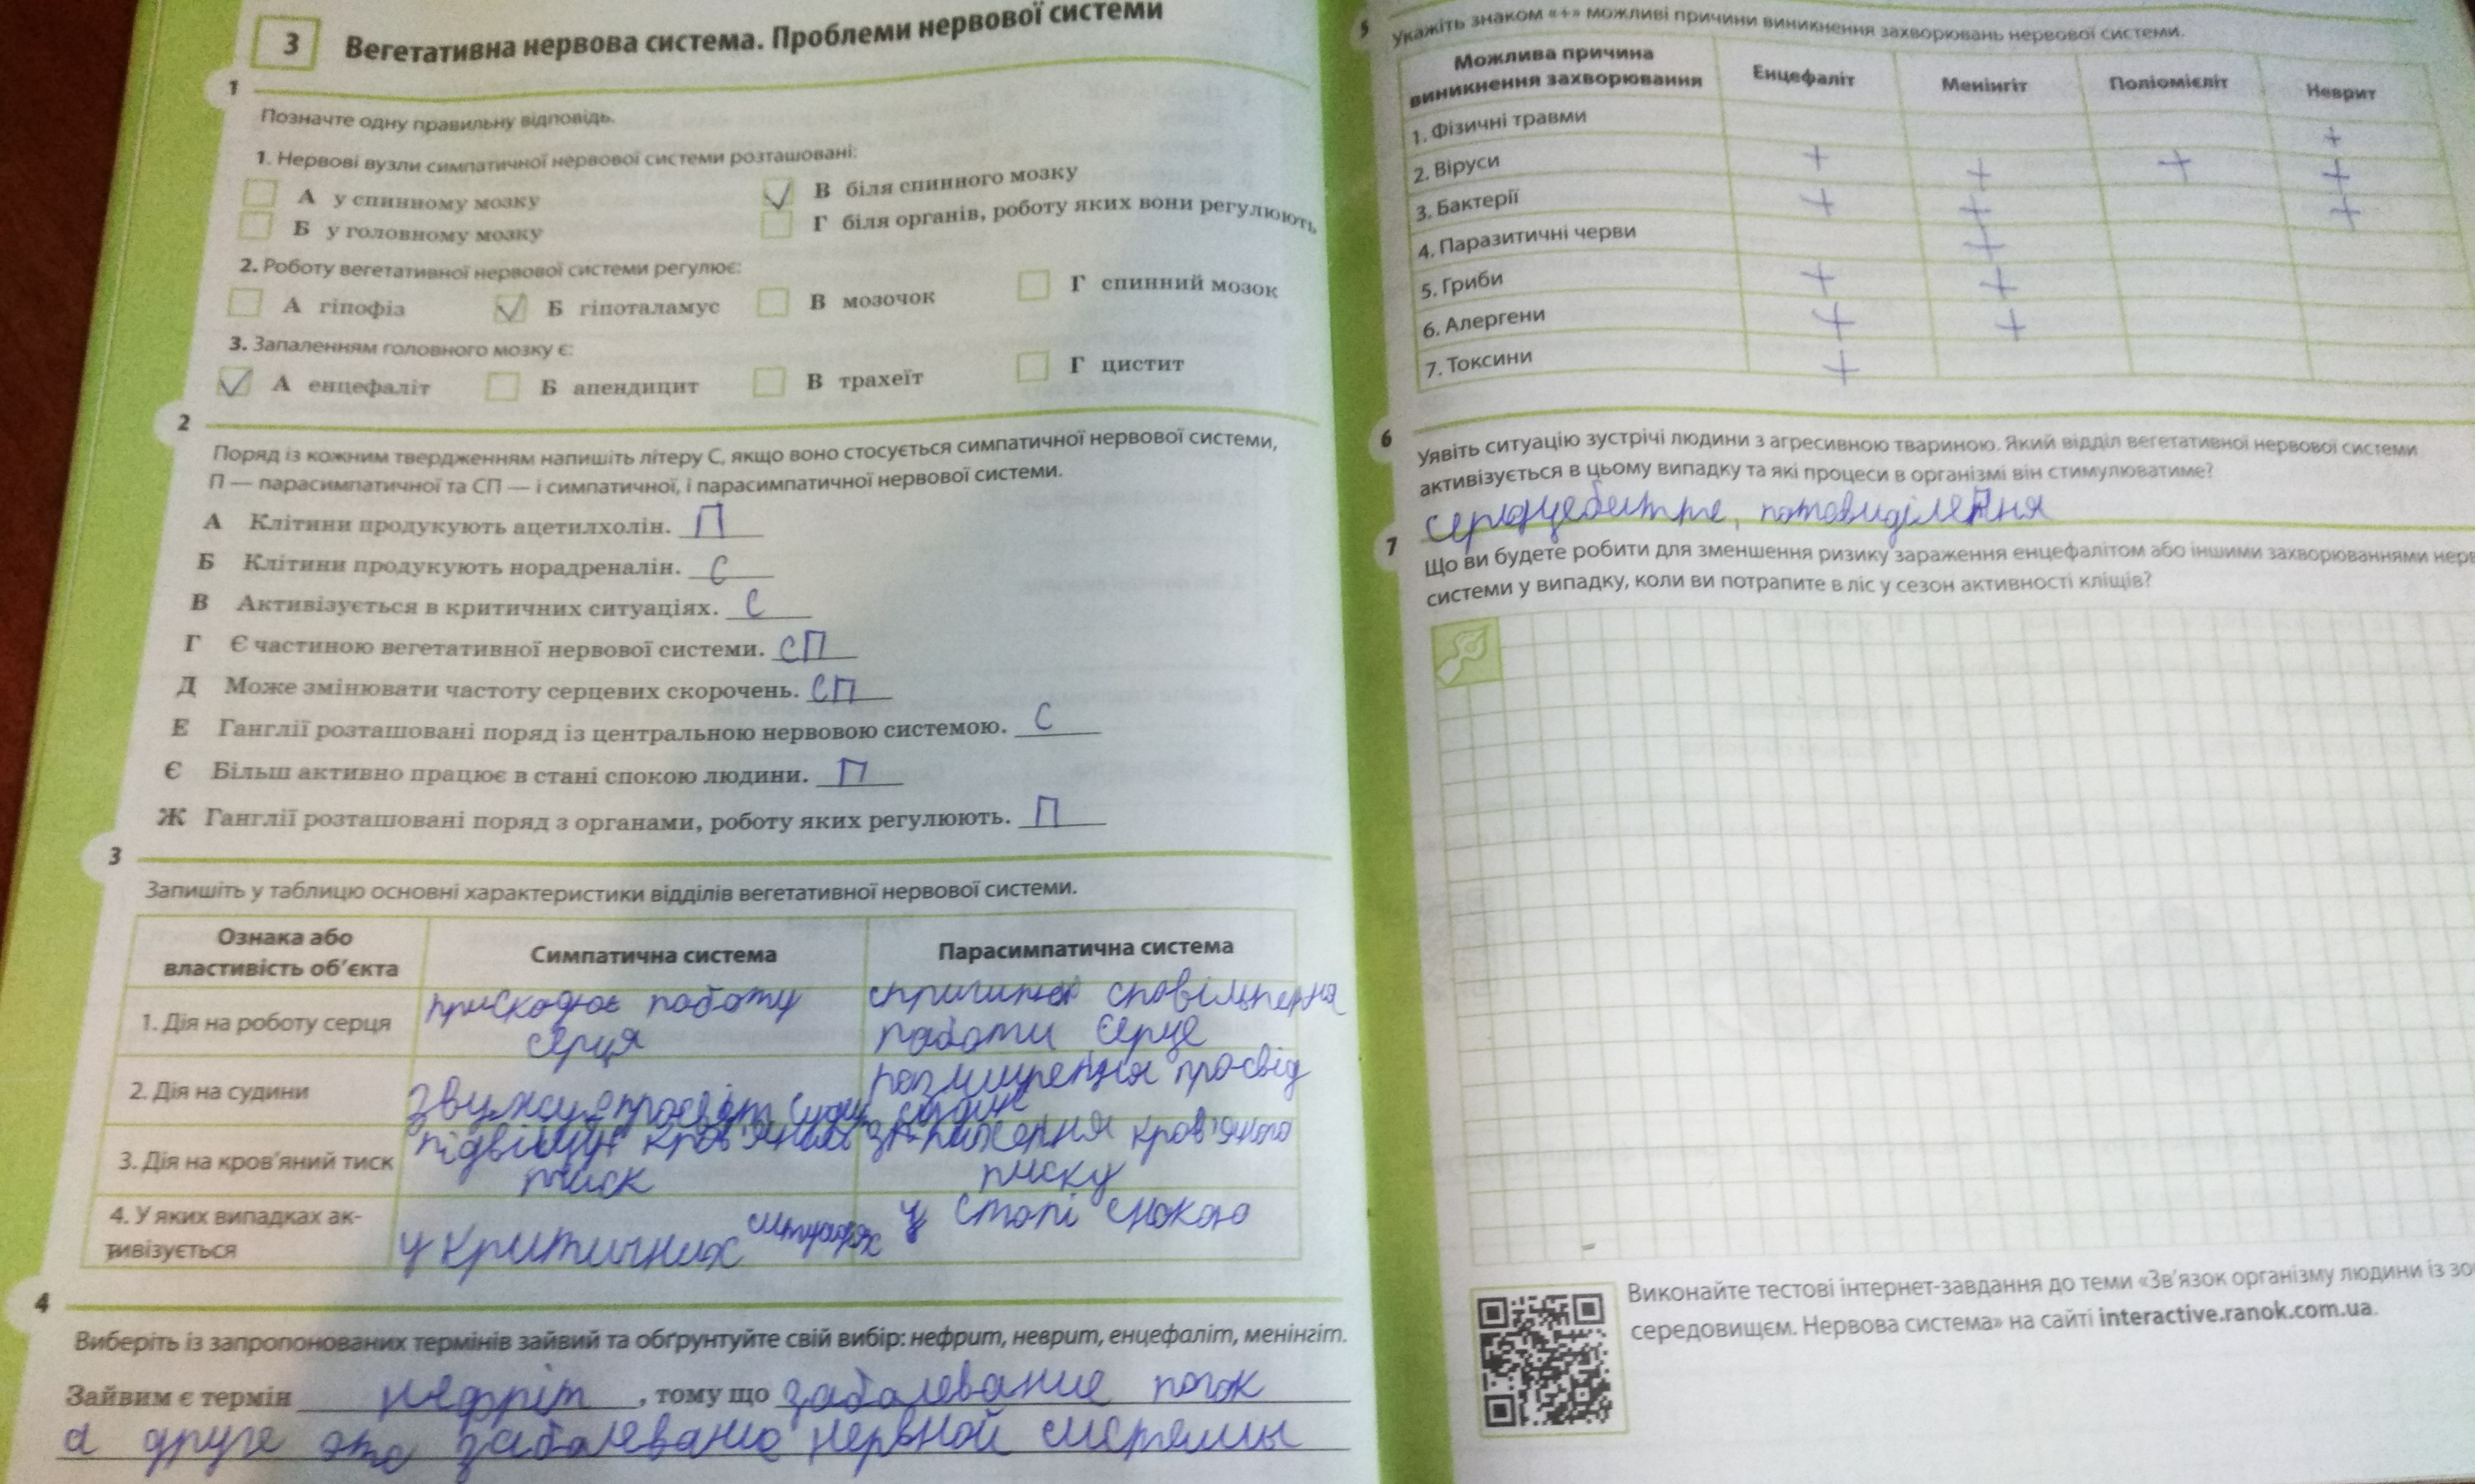 3 Вегетативна нервова система. Проблеми нервової системи
1
Позначте одну правильну відповідь.
1. Нервові вузли симпатичної нервової системи розташовані:
А у спинному мозку
В біля спинного мозку
Б у головному мозку
Г біля органів, роботу яких вони регулюють
2. Роботу вегетативної нервової системи регулює:
А гіпофіз Б гіпоталамус В мозочок Г спинний мозок
3. Запаленням головного мозку є:
А енцефаліт Б апендицит В трахеїт Г цистит
2
Поряд із кожним твердженням напишіть літеру С, якщо воно стосується симпатичної нервової системи,
П — парасимпатичної та СП — і симпатичної, і парасимпатичної нервової системи.
А Клітини продукують ацетилхолін. П
Б Клітини продукують норадреналін. С
В Активізується в критичних ситуаціях. С
Г Є частиною вегетативної нервової системи. СП
Д Може змінювати частоту серцевих скорочень. СП
Е Ганглії розташовані поряд із центральною нервовою системою. С
Є Більш активно працює в стані спокою людини. П
Ж Ганглії розташовані поряд з органами, роботу яких регулюють. П
3
Запишіть у таблицю основні характеристики відділів вегетативної нервової системи.
Ознака або
властивість об'єкта
Симпатична система
Парасимпатична система
1. Дія на роботу серця
роботу
серця
роботи серце
2. Дія на судини
просвід
судин
3. Дія на кров'яний тиск
тиск
кров'яного
тиску
4. У яких випадках ак-
тивізується
у критичних ситуаціях
у стані спокою
4
Виберіть із запропонованих термінів зайвий та обґрунтуйте свій вибір: нефрит, неврит, енцефаліт, менінгіт.
Зайвим є термін нефріт, тому що заболевание почк
а друге это заболевание нервной системы
5
Укажіть знаком «+» можливі причини виникнення захворювань нервової системи.
Можлива причина
виникнення захворювання
Енцефаліт Менінгіт Поліомієліт Неврит
1. Фізичні травми +
2. Віруси + + + +
3. Бактерії + + +
4. Паразитичні черви +
5. Гриби + +
6. Алергени + +
7. Токсини +
6
Уявіть ситуацію зустрічі людини з агресивною твариною. Який відділ вегетативної нервової системи
активізується в цьому випадку та які процеси в організмі він стимулюватиме?
потовиділення
7
Що ви будете робити для зменшення ризику зараження енцефалітом або іншими захворюваннями нерв
системи у випадку, коли ви потрапите в ліс у сезон активності кліщів?
Виконайте тестові інтернет-завдання до теми «Зв'язок організму людини із зо
середовищем. Нервова система» на сайті interactive.ranok.com.ua.